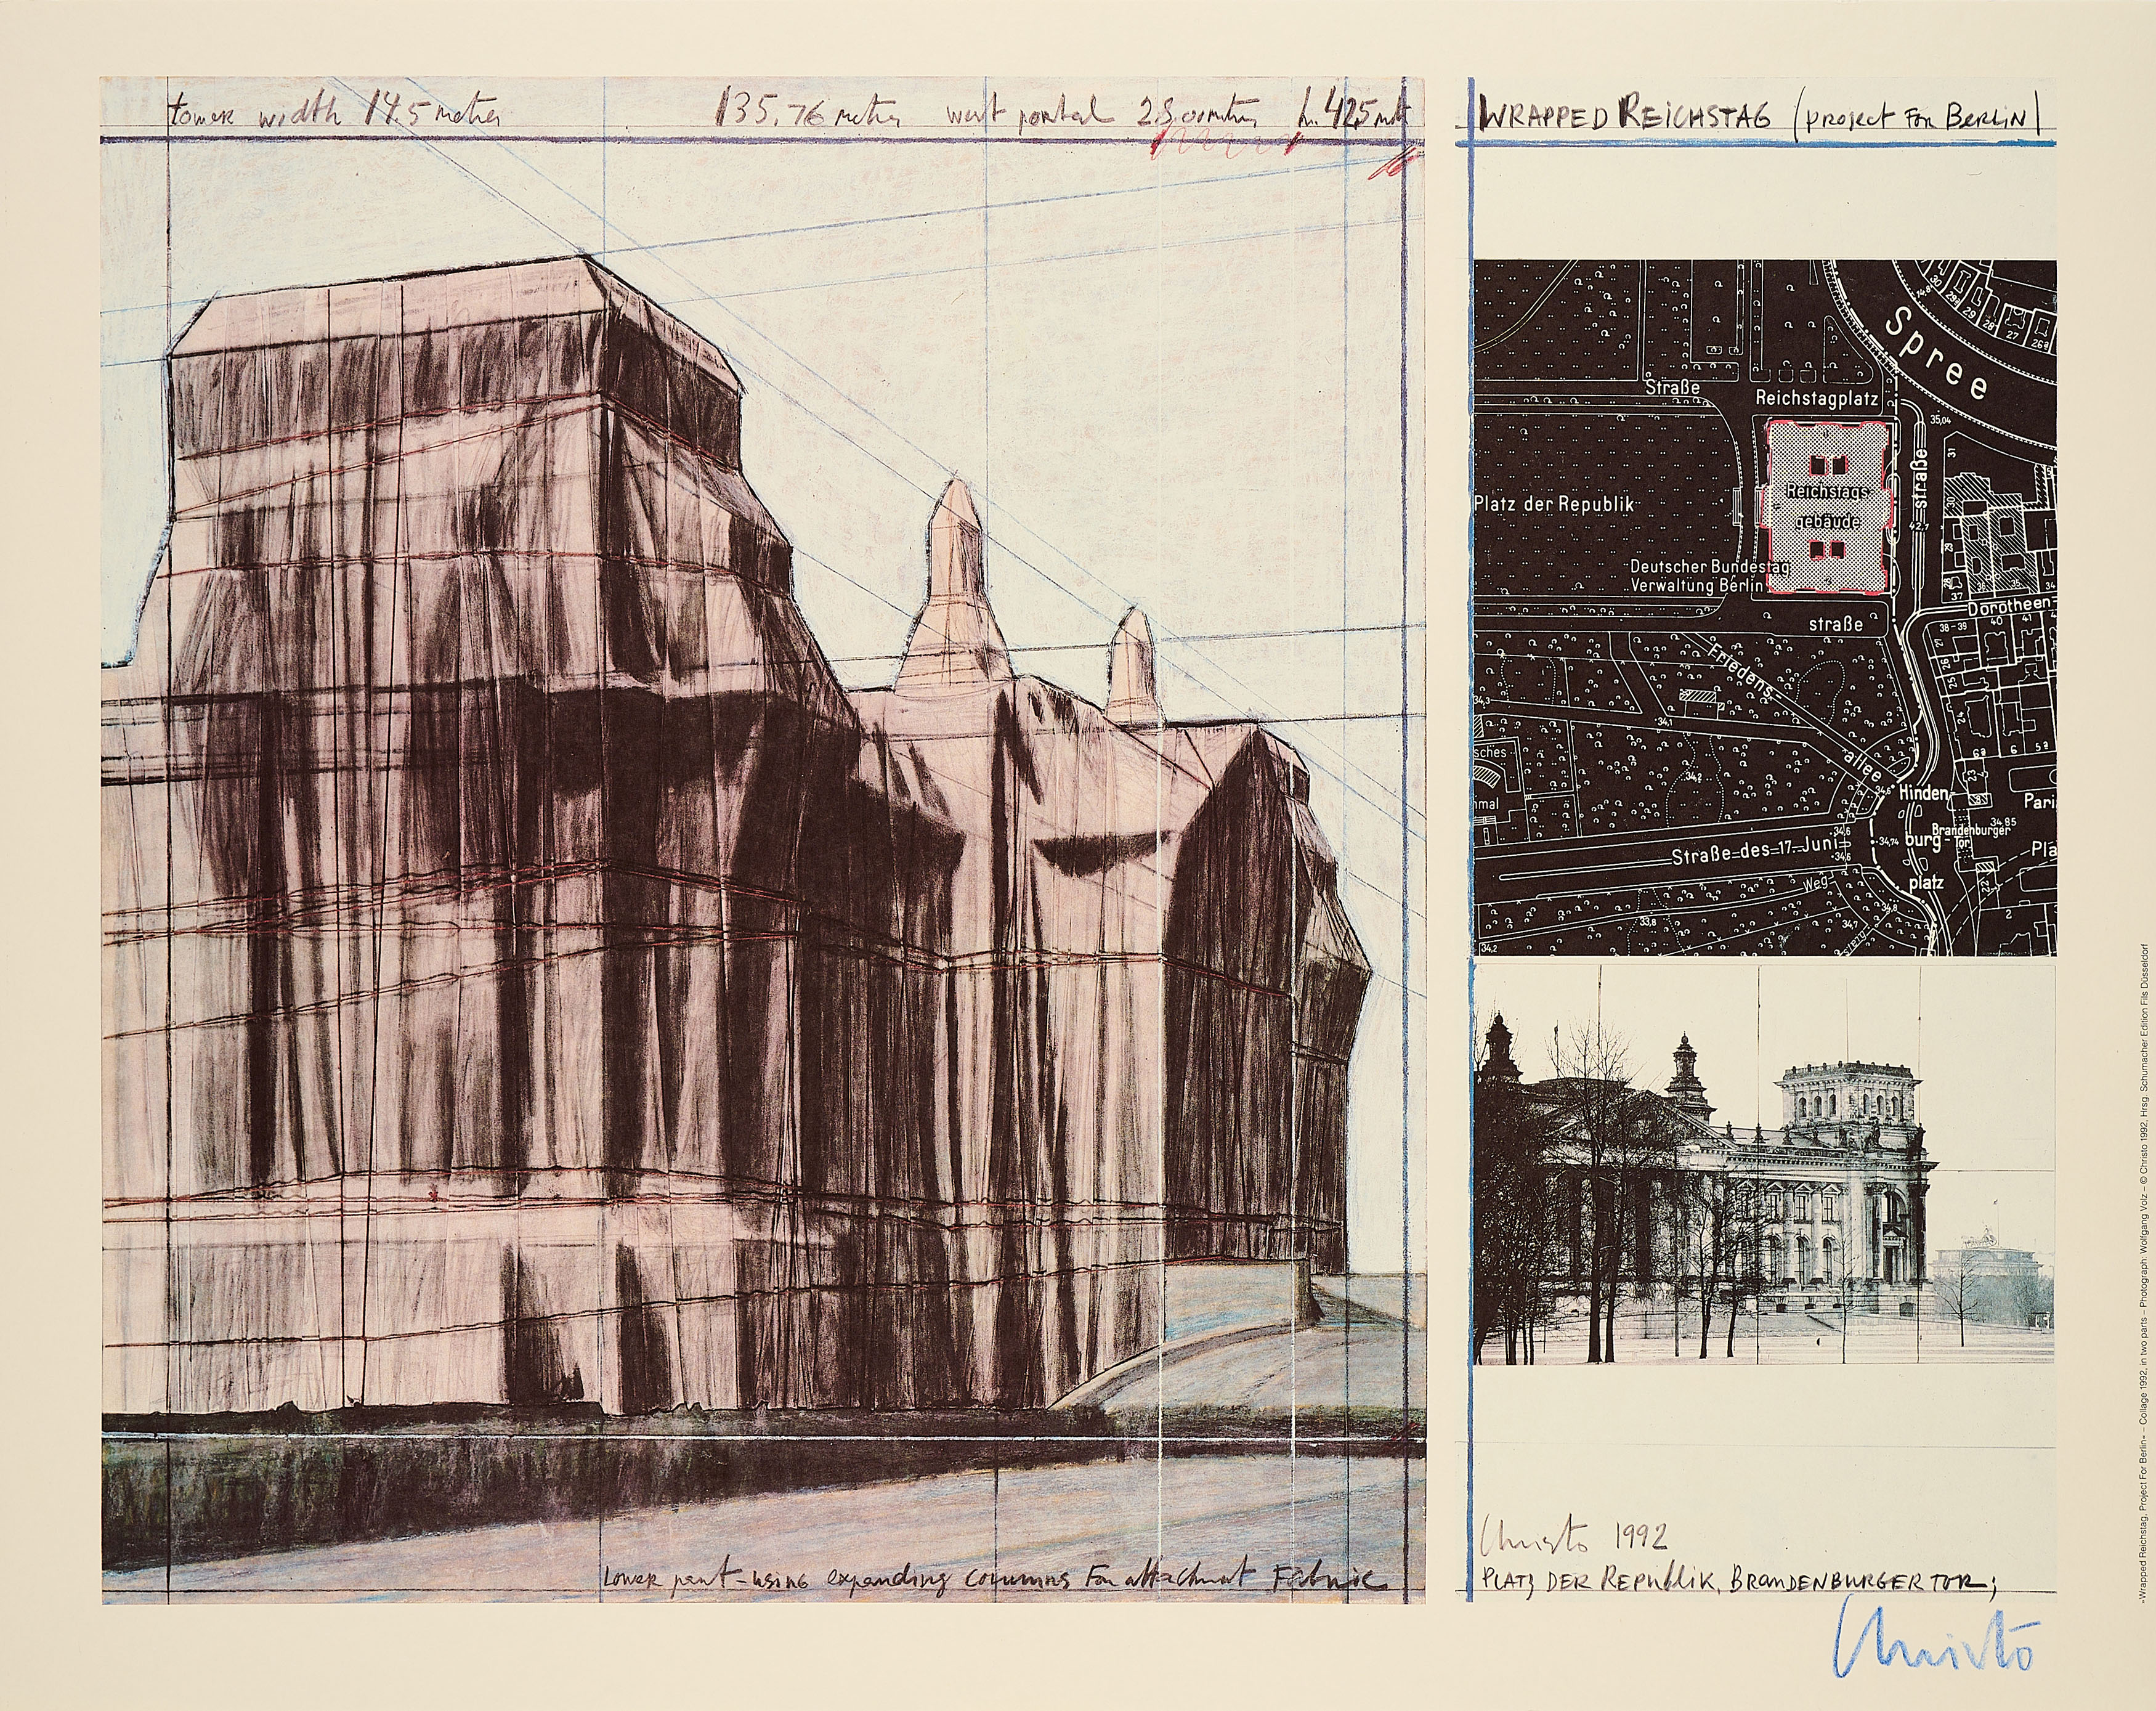 tower width 14.5 metres 135.76 metres west portal 28.00 metres h. 42.5 mt
WRAPPED REICHSTAG (project For BERLiN)
Spree
Straße
Reichstagplatz
35,04
straße
Platz der Republik
Reichstags-
gebäude
Deutscher Bundestag
Verwaltung Berlin
Dorotheen-
straße
Friedens-
allee
Hinden-
burg-
platz
Brandenburger
Tor
Pari
Straße des 17. Juni
Weg
Lower part - using expanding columns For attachment Fabric
Christo 1992
PLATZ DER REPUBLIK, BRANDENBURGER TOR;
Christo
»Wrapped Reichstag, Project For Berlin« – Collage 1992, in two parts – Photograph: Wolfgang Volz – © Christo 1992, Hrsg. Schumacher Edition Fils Düsseldorf